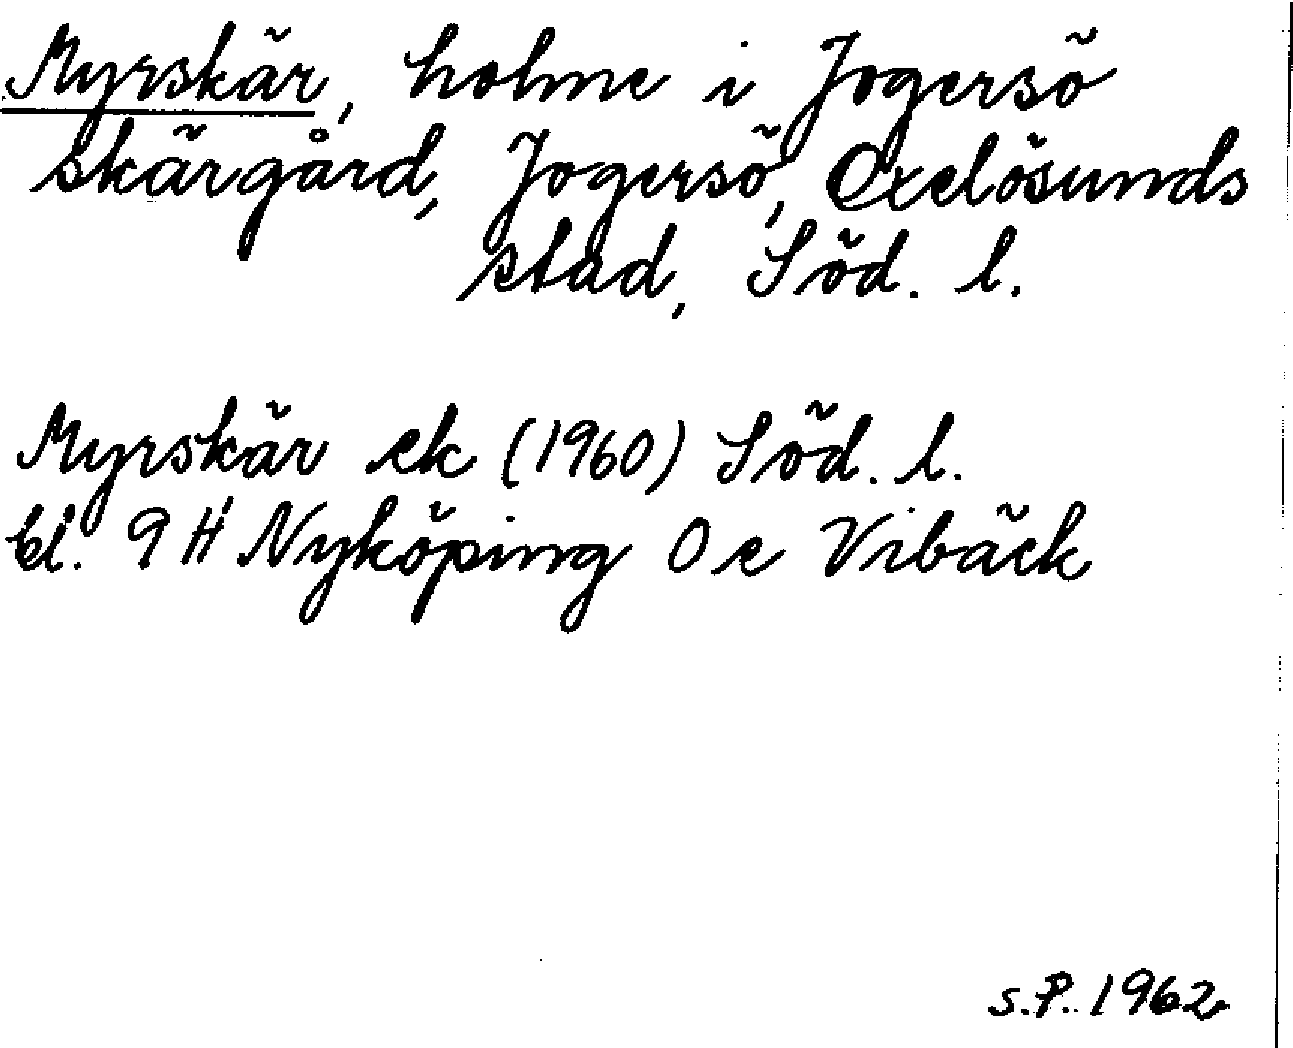 Myrskär, holme i Jogersö
skärgård, Jogersö, Oxelösunds
stad, Söd. l.
Myrskär ek (1960) Söd. l.
bl. 9 H Nyköping O e Vibäck
s.P. 1962